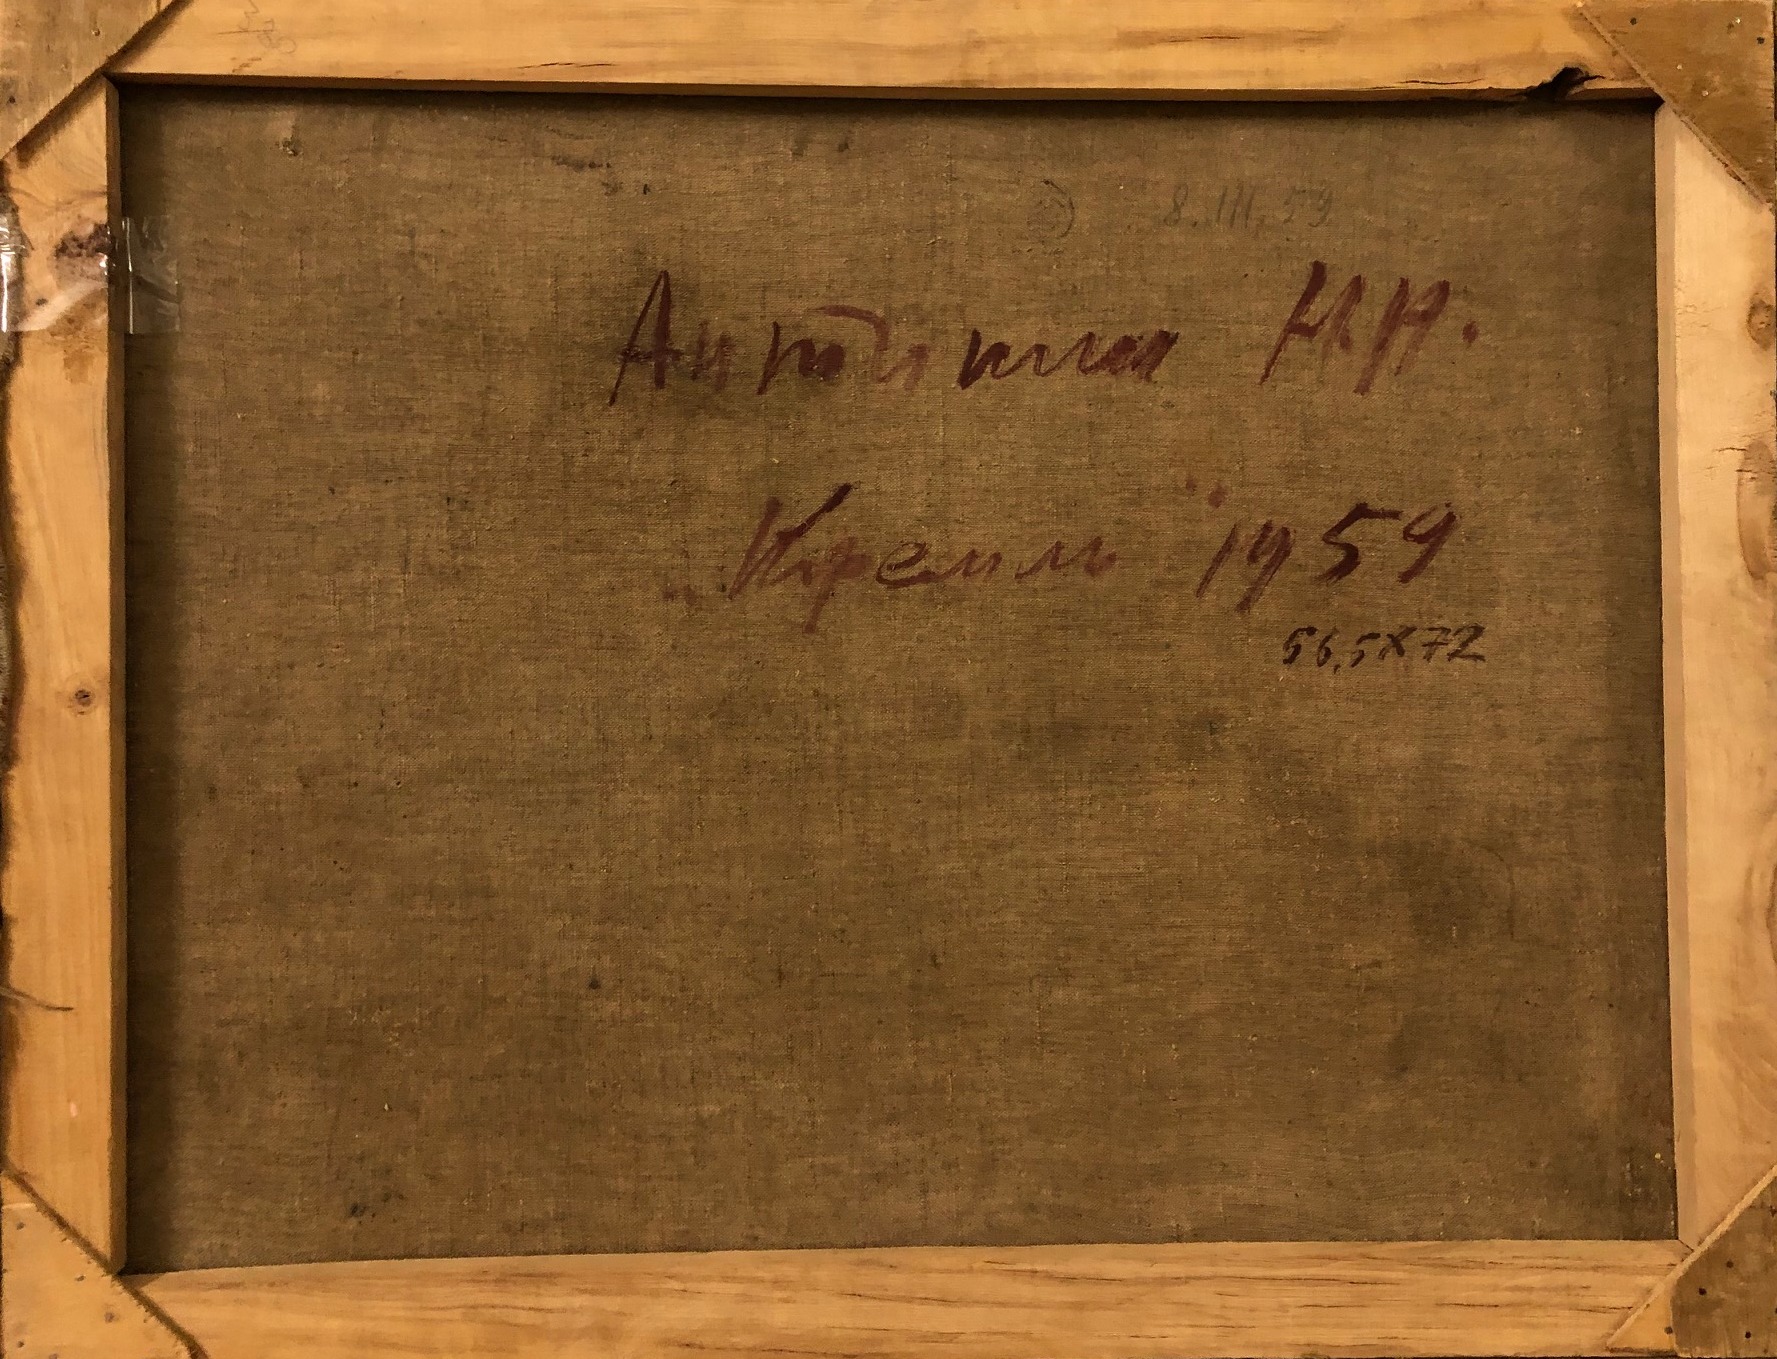 8.III.59
Антипин Н.Н.
„Кремль" 1959
56,5X72